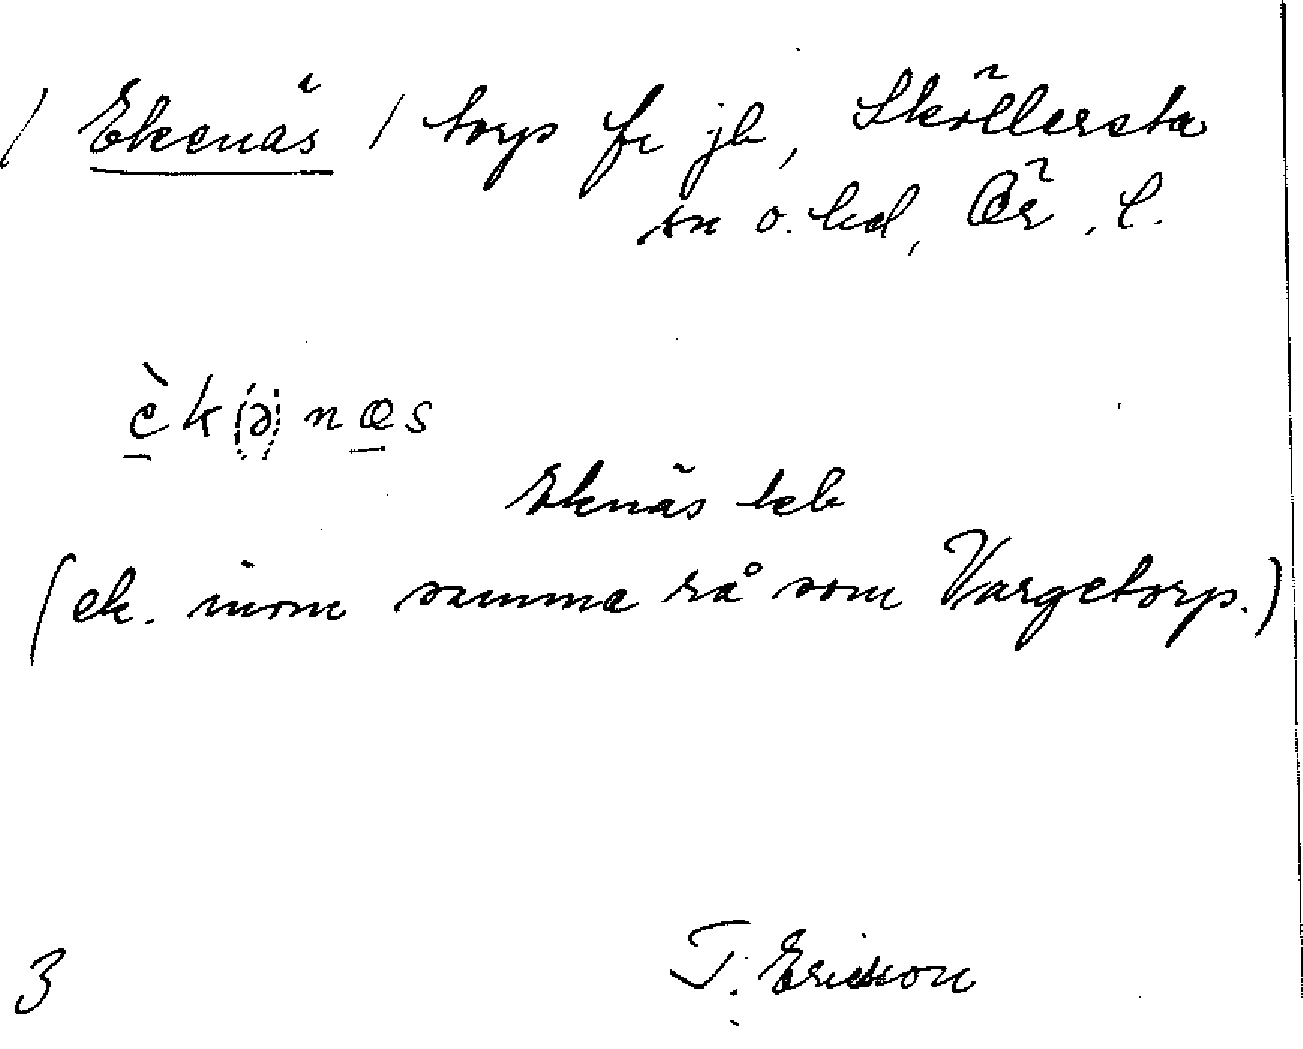 / Ekenäs / torp fr jb, Sköllersta
sn o. hd, Ör. l.
èk(ə)næs
Eknäs kb
(ek. inom samma rå som Vargetorp.)
3 T. Ericsson